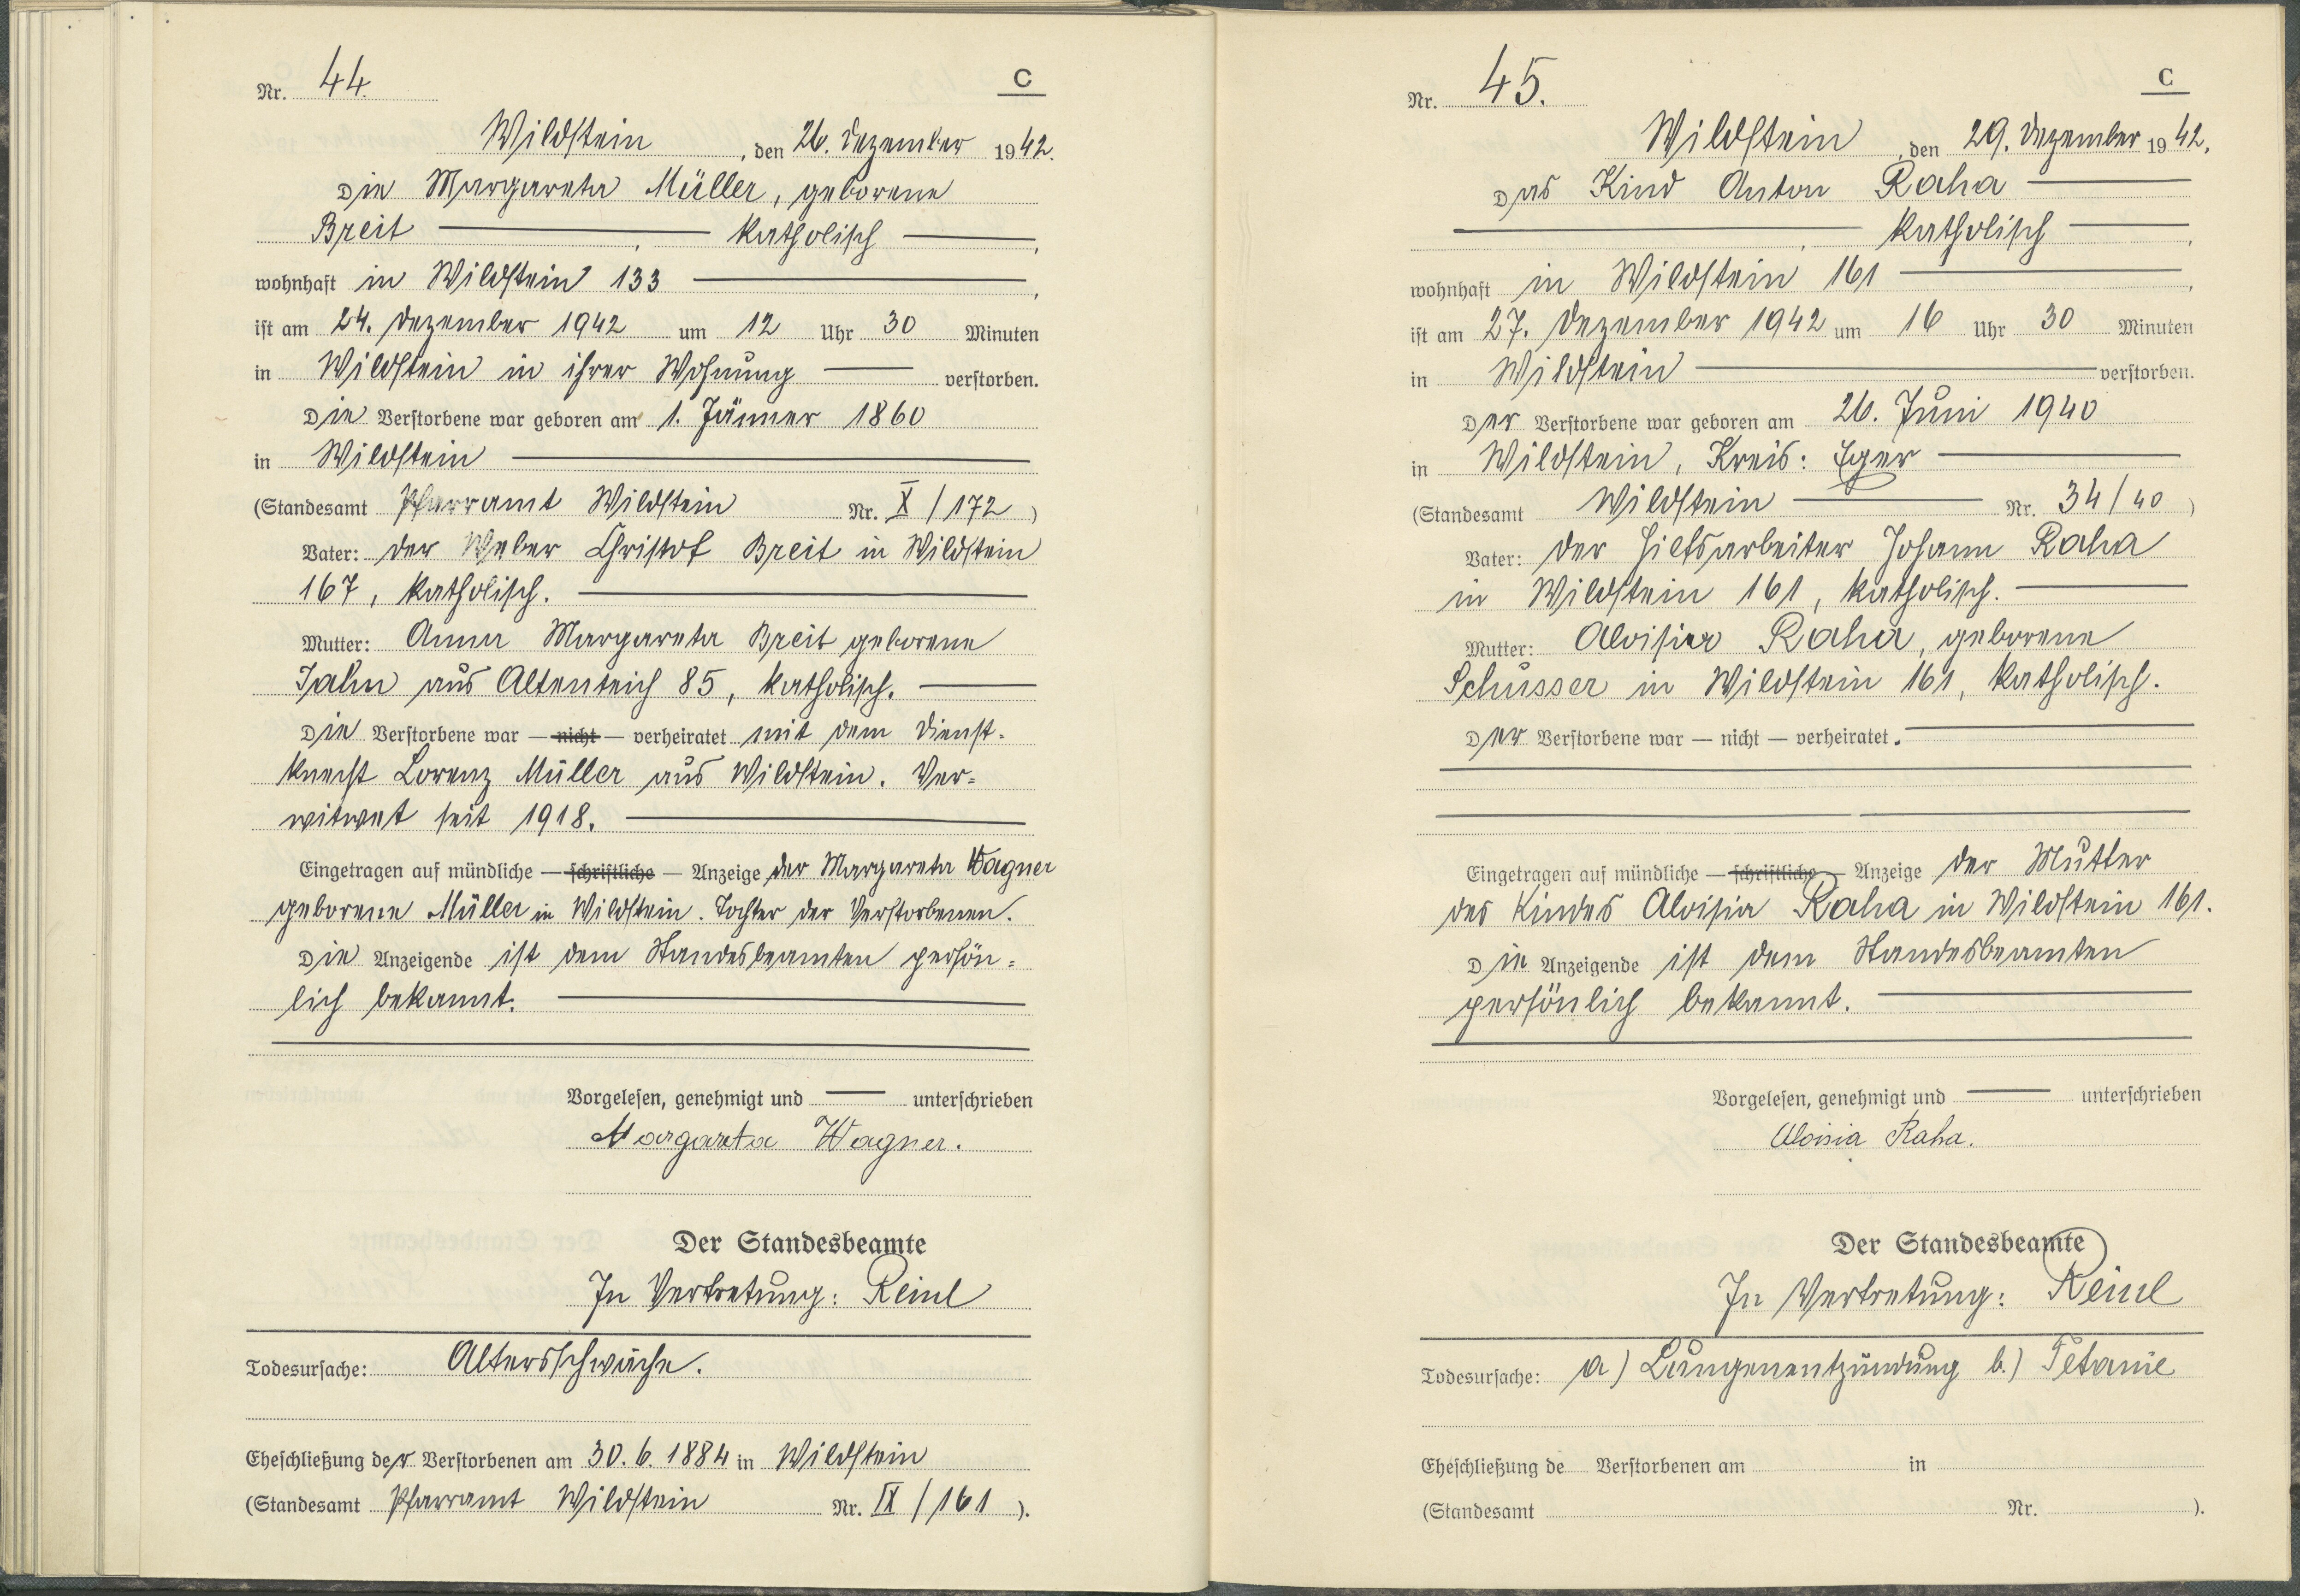 Nr. 44.
C
Wildstein, den 26. Dezember 1942.
Die Margareta Müller, geborene
Breit, katholisch,
wohnhaft in Wildstein 133,
ist am 24. Dezember 1942 um 12 Uhr 30 Minuten
in Wildstein in ihrer Wohnung verstorben.
Die Verstorbene war geboren am 1. Jänner 1860
in Wildstein
(Standesamt Pfarramt Wildstein Nr. X/172)
Vater: der Weber Christof Breit in Wildstein
167, katholisch.
Mutter: Anna Margareta Breit geborene
Jahn aus Altenteich 85, katholisch.
Die Verstorbene war — nicht — verheiratet mit dem Dienst-
knecht Lorenz Müller aus Wildstein. Ver-
witwet seit 1918.
Eingetragen auf mündliche — schriftliche — Anzeige der Margareta Wagner
geborene Müller in Wildstein. Tochter der Verstorbenen.
Die Anzeigende ist dem Standesbeamten persön-
lich bekannt.
Vorgelesen, genehmigt und — unterschrieben
Margareta Wagner.
Der Standesbeamte
In Vertretung: Reinl
Todesursache: Altersschwäche.
Eheschließung der Verstorbenen am 30.6.1884 in Wildstein
(Standesamt Pfarramt Wildstein Nr. IX/161).
Nr. 45.
C
Wildstein, den 29. Dezember 1942.
Das Kind Anton Raha
, katholisch,
wohnhaft in Wildstein 161,
ist am 27. Dezember 1942 um 16 Uhr 30 Minuten
in Wildstein verstorben.
Der Verstorbene war geboren am 26. Juni 1940
in Wildstein, Kreis: Eger
(Standesamt Wildstein Nr. 34/40)
Vater: der Hilfsarbeiter Johann Raha
in Wildstein 161, katholisch.
Mutter: Aloisia Raha, geborene
Schusser in Wildstein 161, katholisch.
Der Verstorbene war — nicht — verheiratet.
Eingetragen auf mündliche — schriftliche — Anzeige der Mutter
des Kindes Aloisia Raha in Wildstein 161.
Die Anzeigende ist dem Standesbeamten
persönlich bekannt.
Vorgelesen, genehmigt und — unterschrieben
Aloisia Raha.
Der Standesbeamte
In Vertretung: Reinl
Todesursache: a) Lungenentzündung b.) Tetanie
Eheschließung de Verstorbenen am in
(Standesamt Nr. ).